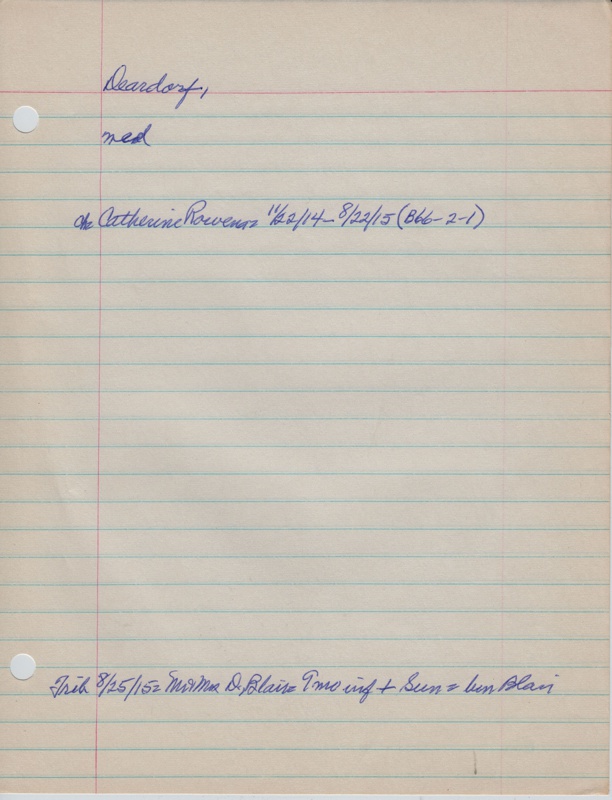 Deardorf,
med
ch= Catherine Rowena= 11/22/14- 8/22/15 (B66-2-1)
Trib 8/25/15= Mr+Mrs D, Blair= 9mo inf + Sun= bur Blair